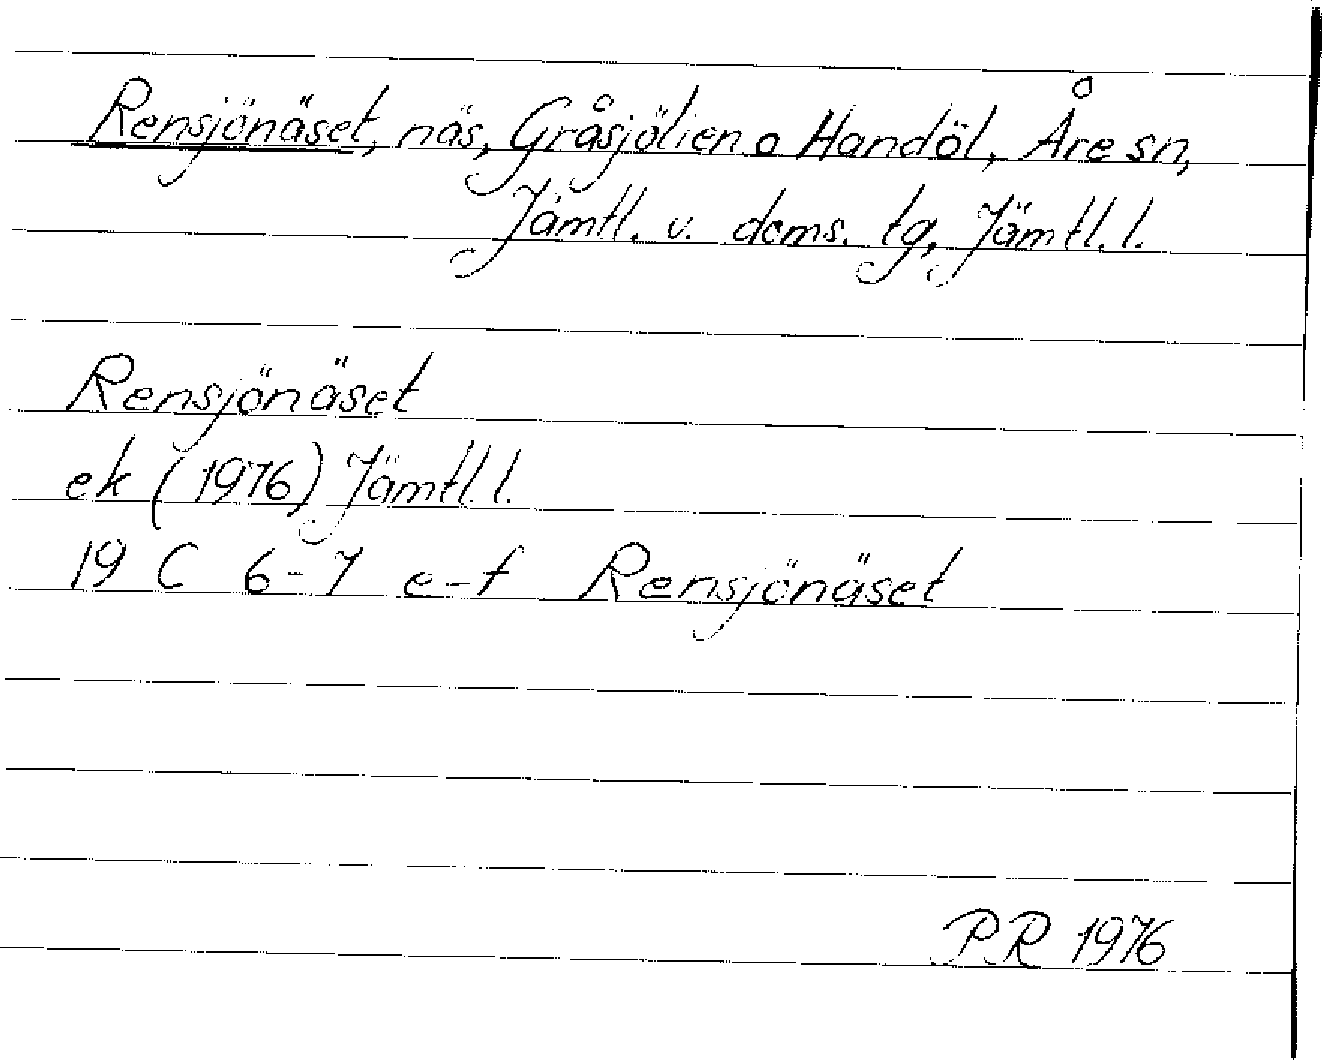 Rensjönäset, näs, Gråsjölien o Handöl, Åre sn,
Jämtl. v. doms. tg, Jämtl. l.
Rensjönäset
ek (1976) Jämtl. l.
19 C 6-7 e-f Rensjönäset
P.R 1976